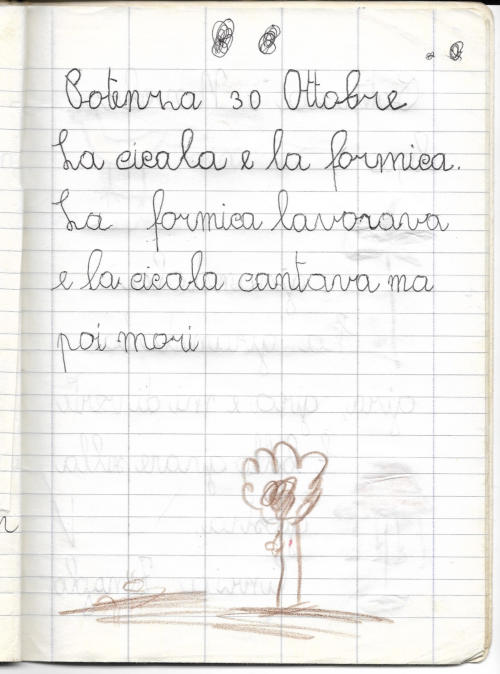 Potenza 30 Ottobre
La cicala e la formica.
La formica lavorava
e la cicala cantava ma
poi mori